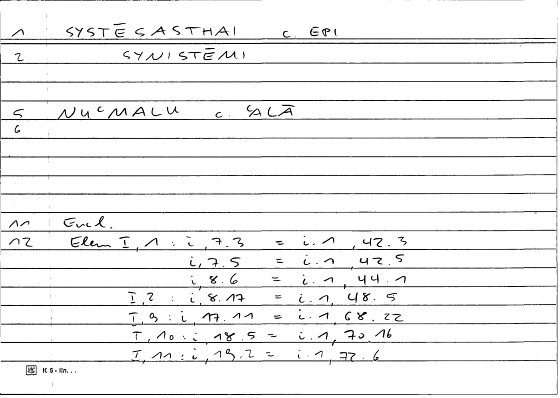 1 SYSTĒSASTHAI c. EPI
2 SYNISTĒMI
5 NUᶜMALU c. ᶜALĀ
6
11 Eucl.
12 Elem I, 1 : i, 7.3 = i.1, 42.3
i, 7.5 = i.1, 42.5
i, 8.6 = i.1, 44.1
I, 2 : i, 8.17 = i.1, 48.5
I, 9 : i, 17.11 = i.1, 68.22
I, 10 : i, 18.5 = i.1, 70.16
I, 11 : i, 19.2 = i.1, 72.6